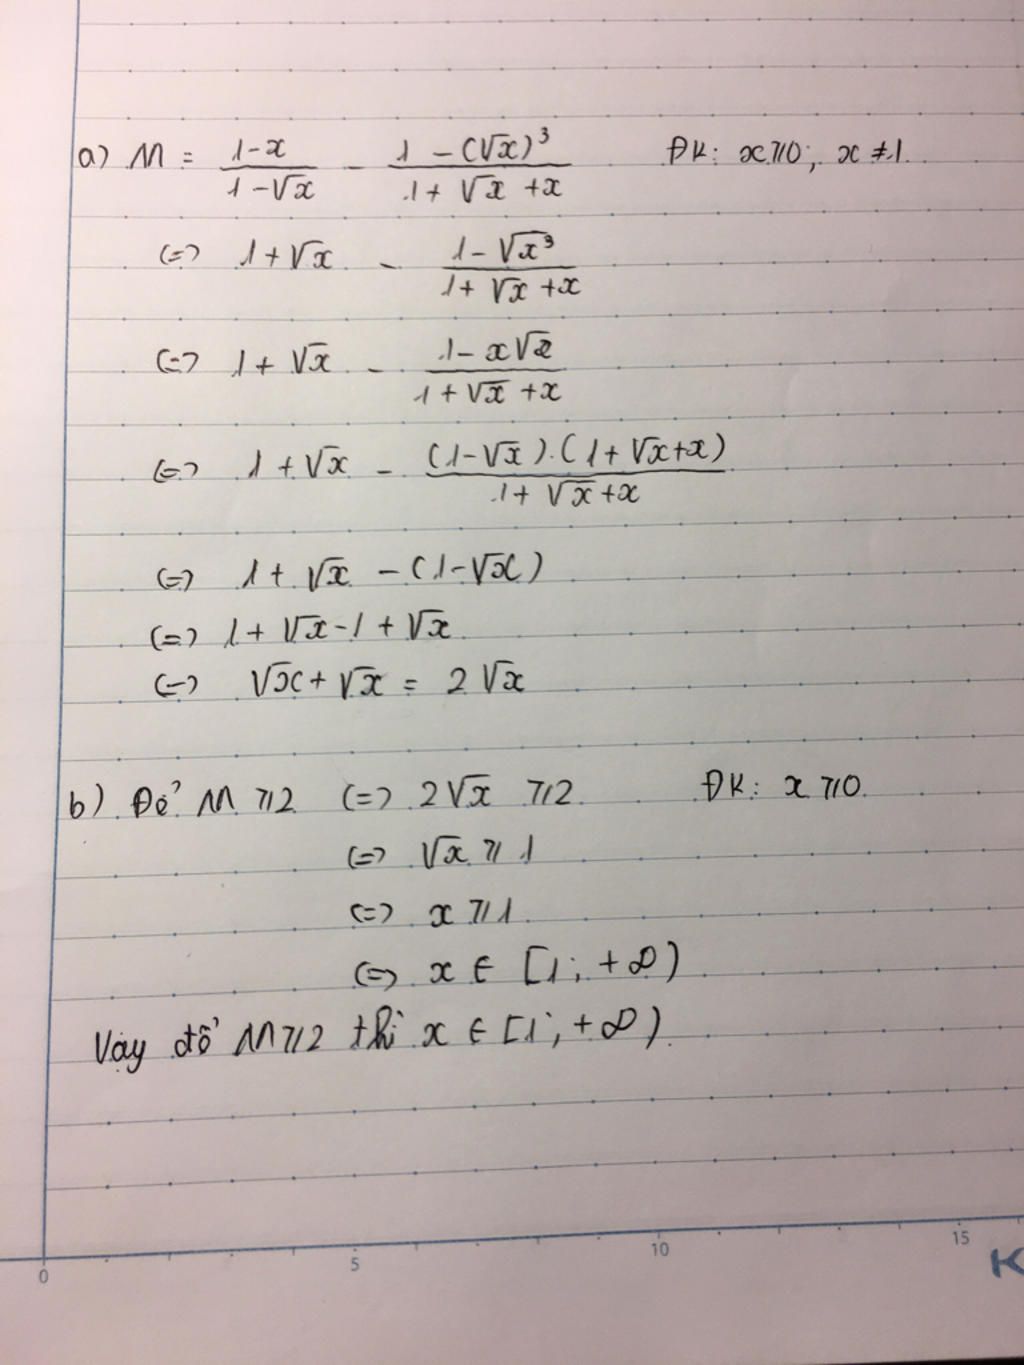 a) M = (1-x)/(1-√x) - (1-(√x)³)/(1+√x+x) ĐK: x ⩾ 0; x ≠ 1.
(=) 1+√x - (1-√x³)/(1+√x+x)
(=) 1+√x - (1-x√x)/(1+√x+x)
(=) 1+√x - ((1-√x).(1+√x+x))/(1+√x+x)
(=) 1+√x - (1-√x)
(=) 1+√x-1+√x
(=) √x+√x = 2√x
b) Để M ⩾ 2 (=) 2√x ⩾ 2 ĐK: x ⩾ 0.
(=) √x ⩾ 1
(=) x ⩾ 1
(=) x ∈ [1; +∞)
Vậy để M ⩾ 2 thì x ∈ [1; +∞).
0 5 10 15
K